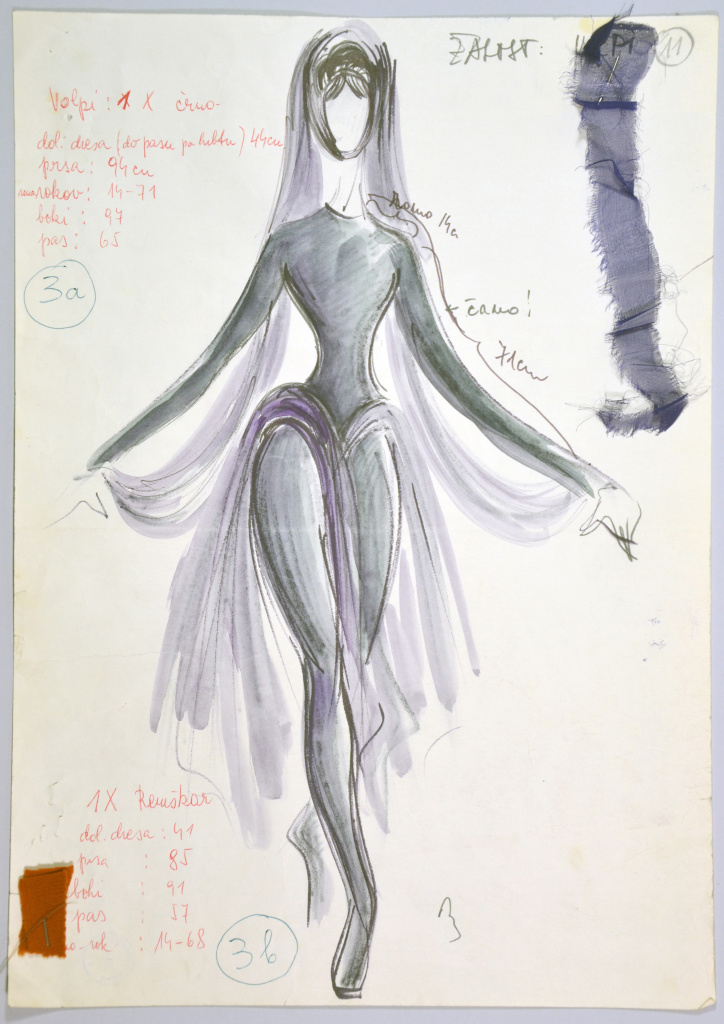 ŽALOST: V PI 11
Volpi: 1 X črno-
dol. dresa (do pasu po hrbtu) 44 cm
prsa: 94 cm
rokov: 14-71
boki: 97
pas: 65
3a
Ramo 14 cm
čamo!
71 cm
1X Remškar
dol. dresa: 41
prsa : 85
boki : 91
pas : 57
o-rok : 14-68
3b